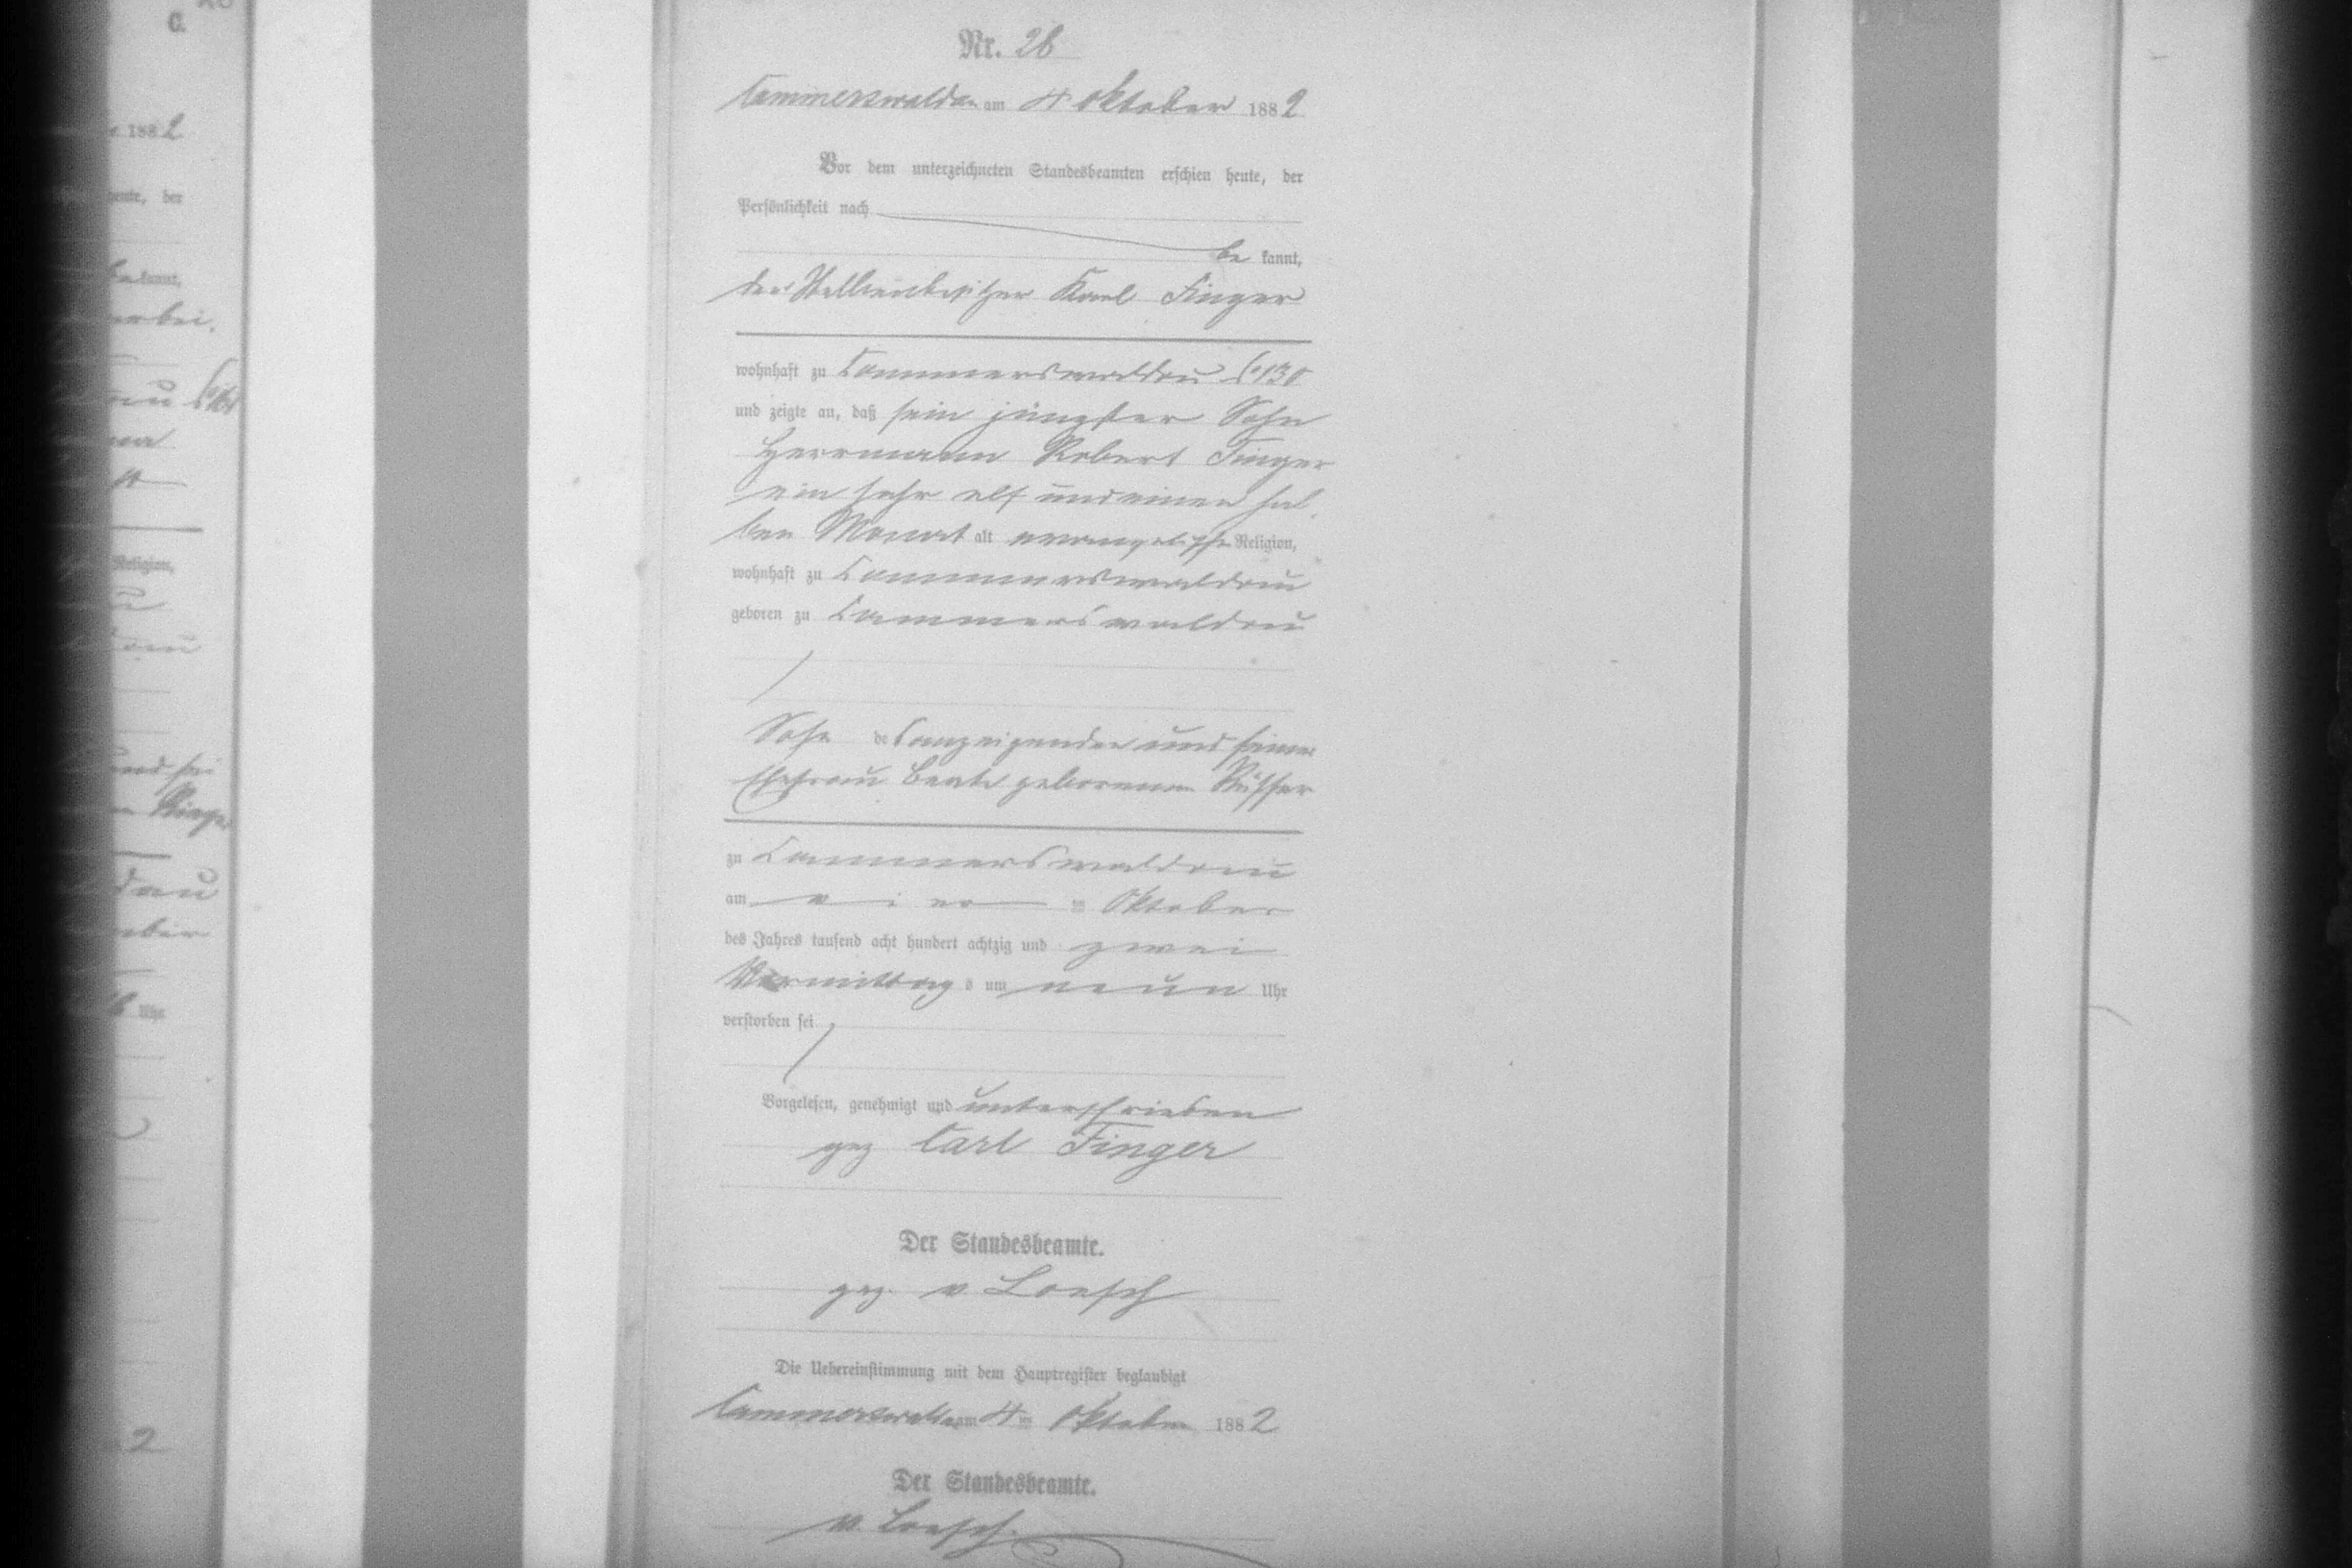 Nr. 28
Cammerswaldau am 4 Oktober 1882
Vor dem unterzeichneten Standesbeamten erschien heute, der
Persönlichkeit nach
be kannt,
der Stellenbesitzer Karl Finger
wohnhaft zu Cammerswaldau
und zeigte an, daß sein jüngster Sohn
Herrmann Robert Finger
ein Jahr elf und einen hal-
ben Monat alt evangelischer Religion,
wohnhaft zu Cammerswaldau
geboren zu Cammerswaldau
Sohn des Anzeigenden und seiner
Ehefrau Beate geborenen
zu Cammerswaldau
am vier ten Oktober
des Jahres tausend acht hundert achtzig und zwei
Vormittag s um neun Uhr
verstorben sei
Vorgelesen, genehmigt und unterschrieben
gez Carl Finger
Der Standesbeamte.
gez. v. Loesch
Die Uebereinstimmung mit dem Hauptregister beglaubigt
Cammerswaldau am 4 ten Oktober 1882
Der Standesbeamte.
v. Loesch.